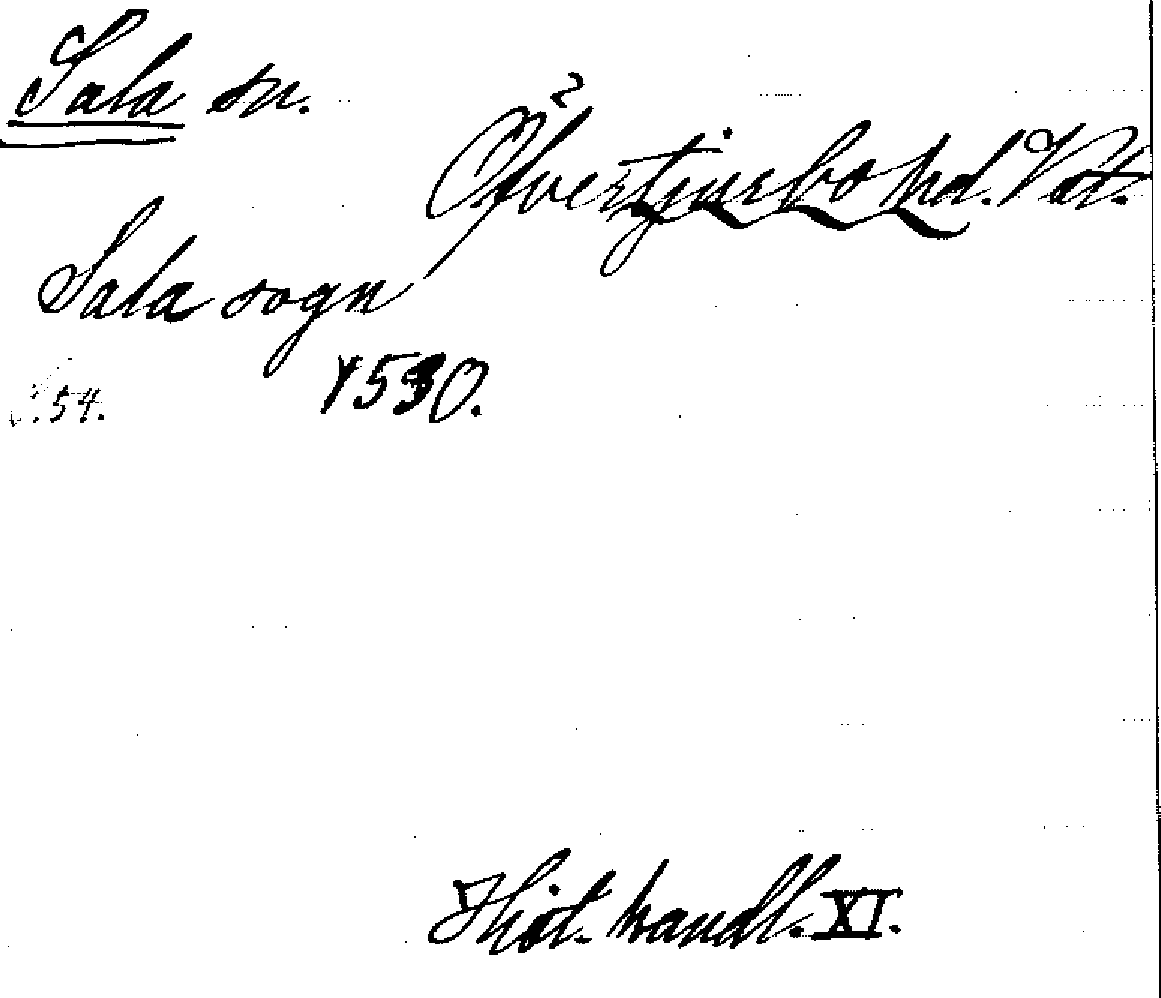 Sala sn.
Öfvertjurbo hd. Vst.
Sala sogn
S. 54. 1530.
Hist. handl. XI.